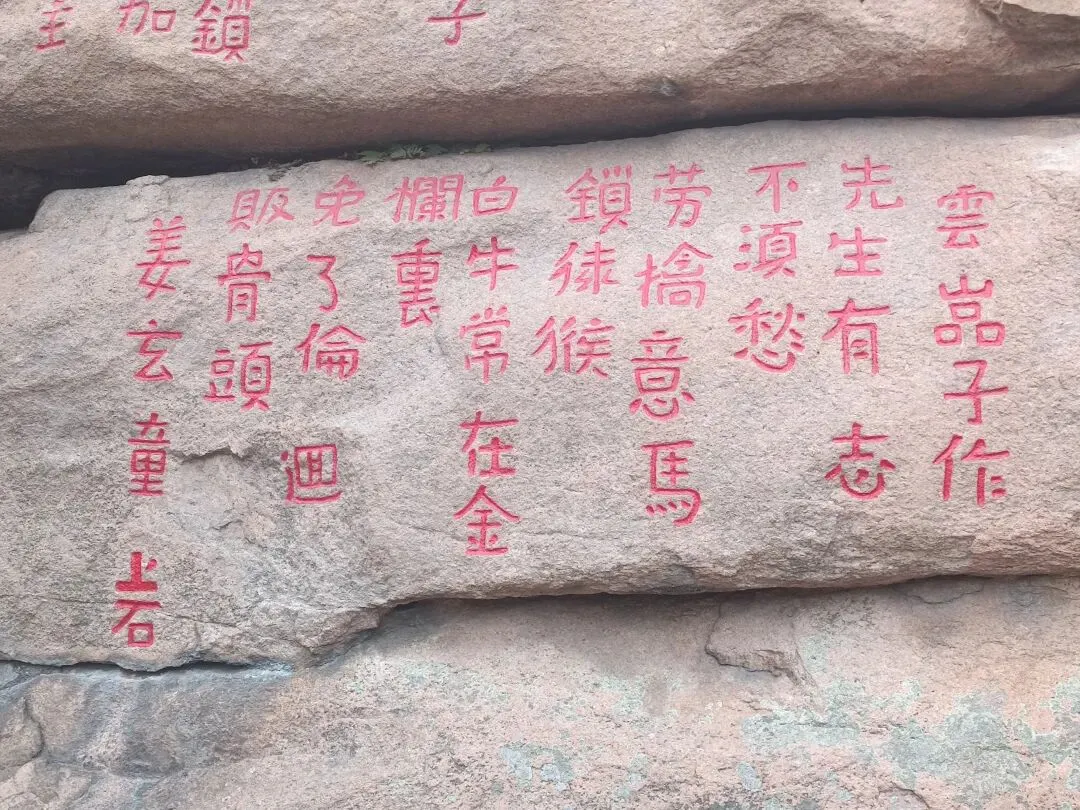 子
鎖
加
雲嵓子作
先生有志
不須愁
劳擒意馬
鎖猴
白牛常在金
欄裏
免了倫逥
販骨頭
姜玄童上石